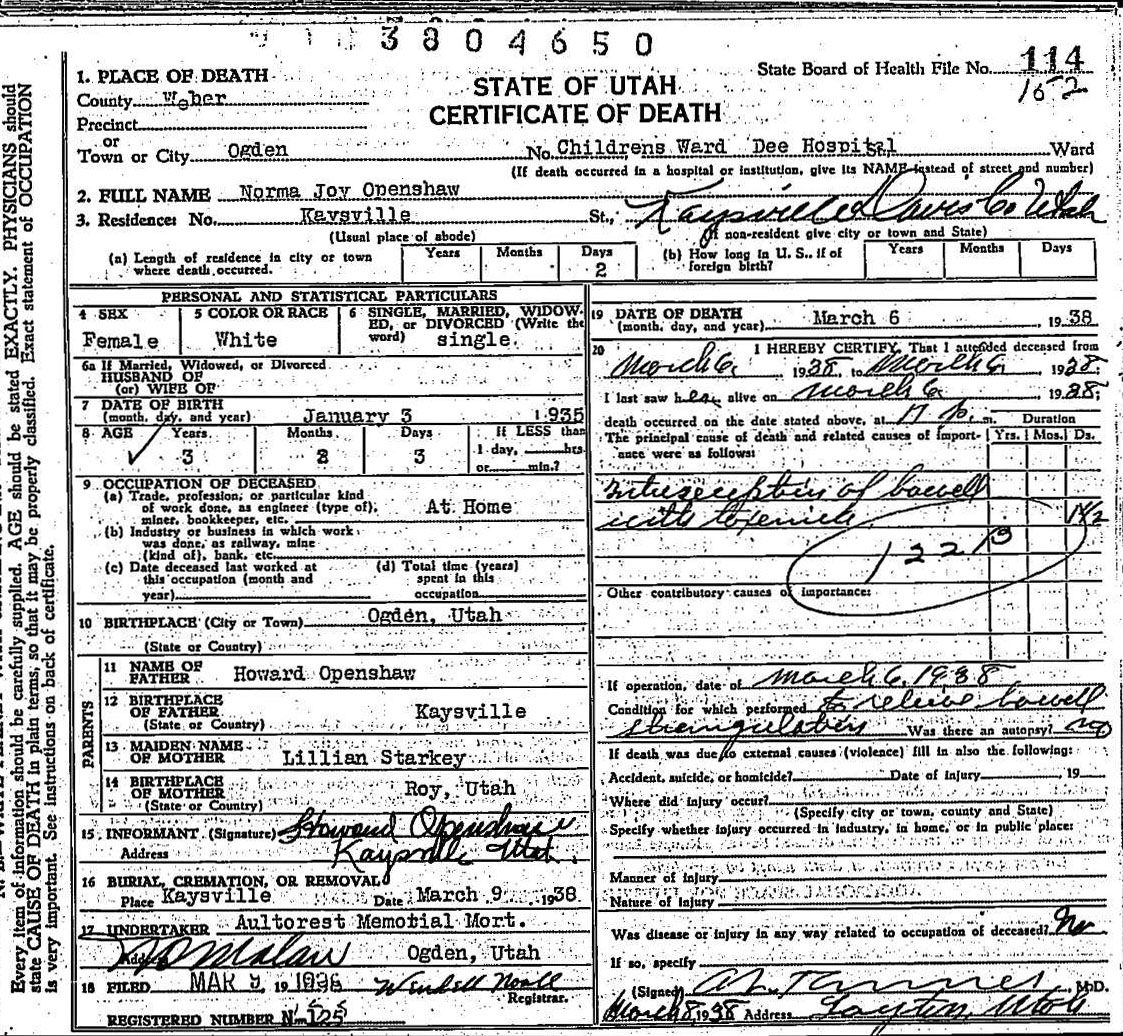 3804650
State Board of Health File No. 114
STATE OF UTAH
CERTIFICATE OF DEATH
1. PLACE OF DEATH
County Weber
Precinct
or
Town or City Ogden No. Childrens Ward Dee Hospital St., Ward
(If death occurred in a hospital or institution, give its NAME instead of street and number)
2. FULL NAME Norma Joy Openshaw
3. Residence: No. Kaysville St., Kaysville Davis Co Utah
(Usual place of abode) (If non-resident give city or town and State)
(a) Length of residence in city or town where death occurred. Years Months Days 2
(b) How long in U. S., if of foreign birth? Years Months Days
PERSONAL AND STATISTICAL PARTICULARS
4 SEX Female
5 COLOR OR RACE White
6 SINGLE, MARRIED, WIDOWED, or DIVORCED (Write the word) single.
6a If Married, Widowed, or Divorced
HUSBAND OF
(or) WIFE OF
7 DATE OF BIRTH
(month, day, and year) January 3 1935
8 AGE Years 3 Months 2 Days 3 If LESS than 1 day, hrs or min.?
9 OCCUPATION OF DECEASED
(a) Trade, profession, or particular kind of work done, as engineer (type of), miner, bookkeeper, etc. At Home
(b) Industry or business in which work was done, as railway, mine (kind of), bank, etc.
(c) Date deceased last worked at this occupation (month and year)
(d) Total time (years) spent in this occupation
10 BIRTHPLACE (City or Town) Ogden, Utah
(State or Country)
PARENTS
11 NAME OF FATHER Howard Openshaw
12 BIRTHPLACE OF FATHER Kaysville
(State or Country)
13 MAIDEN NAME OF MOTHER Lillian Starkey
14 BIRTHPLACE OF MOTHER Roy, Utah
(State or Country)
15 INFORMANT (Signature) Howard Openshaw
Address Kaysville Utah.
16 BURIAL, CREMATION, OR REMOVAL
Place Kaysville Date March 9 1938
17 UNDERTAKER Aultorest Memotial Mort.
Address Ogden, Utah
18 FILED MAR 1938 Wendell Noall
Registrar.
REGISTERED NUMBER N-125
19 DATE OF DEATH
(month, day, and year) March 6, 1938
20 I HEREBY CERTIFY, That I attended deceased from
March 6, 1938, to March 6, 1938;
I last saw her alive on March 6, 1938;
death occurred on the date stated above, at p. m.
The principal cause of death and related causes of importance were as follows: Duration Yrs. Mos. Ds.
Intusception of bowell
with
122 B
Other contributory causes of importance:
If operation, date of March 6, 1938
Condition for which performed to relieve bowell
strangulation Was there an autopsy? no
If death was due to external causes (violence) fill in also the following:
Accident, suicide, or homicide? Date of injury 19
Where did injury occur?
(Specify city or town, county and State)
Specify whether injury occurred in industry, in home, or in public place:
Manner of injury
Nature of injury
Was disease or injury in any way related to occupation of deceased? No
If so, specify
(Signed) M.D.
March 8, 1938 Address Layton, Utah
Every item of information should be carefully supplied. AGE should be stated EXACTLY. PHYSICIANS should
state CAUSE OF DEATH in plain terms, so that it may be properly classified. Exact statement of OCCUPATION
is very important. See instructions on back of certificate.